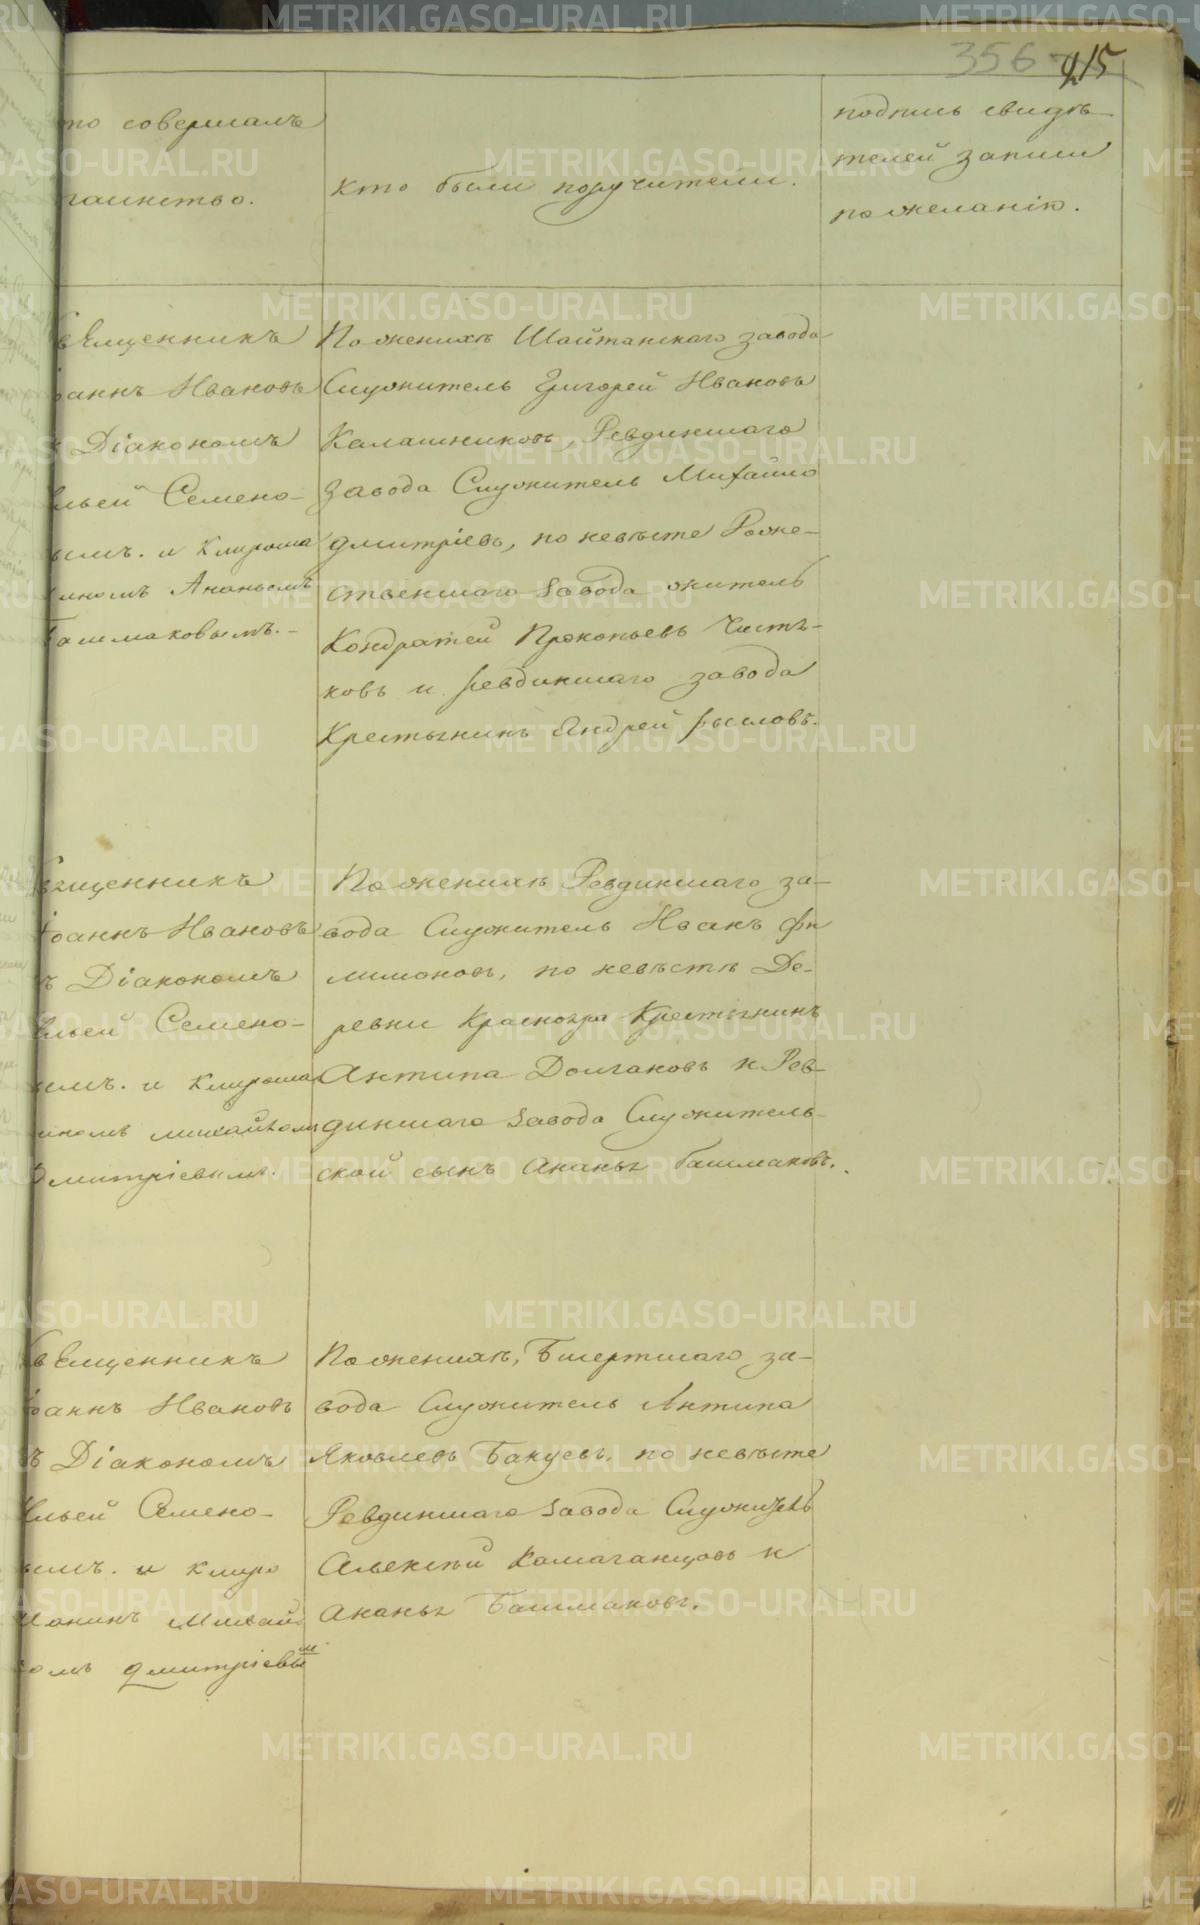 356
415
то совершалъ
таинство.
кто были поручители.
подпись свидѣ-
телей записи
по желанію.
Священникъ
Іоаннъ Ивановъ
Діакономъ
Ильей Семено-
вымъ. и Клироша
ниномъ Ананьемъ
Башмаковымъ.-
По женихѣ Шайтанскаго завода
Служитель Григорей Ивановъ
Калашниковъ, Ревдинскаго
завода Служитель Михайло
Дмитріевъ, по невѣсте Рожде-
ственскаго завода житель
Кондратей Прокопьевъ Чистѣ-
ковъ и Ревдинскаго завода
Крестьянинъ Андрей Рысловъ.
Священникъ
Іоаннъ Ивановъ
съ Діакономъ
Ильей Семено-
вымъ. и Клироша
ниномъ Михайломъ
Дмитріевымъ.
По женихѣ Ревдинскаго за-
вода Служитель Иванъ Фи
лимоновъ, по невѣстѣ Де-
ревни Краснояра Крестьянинъ
Антипа Долгановъ и Рев-
динскаго завода Служитель-
ской сынъ Ананья Башмаковъ.
Священникъ
Іоаннъ Ивановъ
съ Діакономъ
Ильей Семено-
вымъ. и клиро
шанинъ Михай
ломъ Дмитріевым
По женихѣ, Бисертскаго за-
вода Служитель Антипа
Яковлевъ Бакуевъ, по невѣсте
Ревдинскаго завода Служитель
Алексѣй Камаганцовъ и
Ананья Башмаковъ.
METRIKI.GASO-URAL.RU